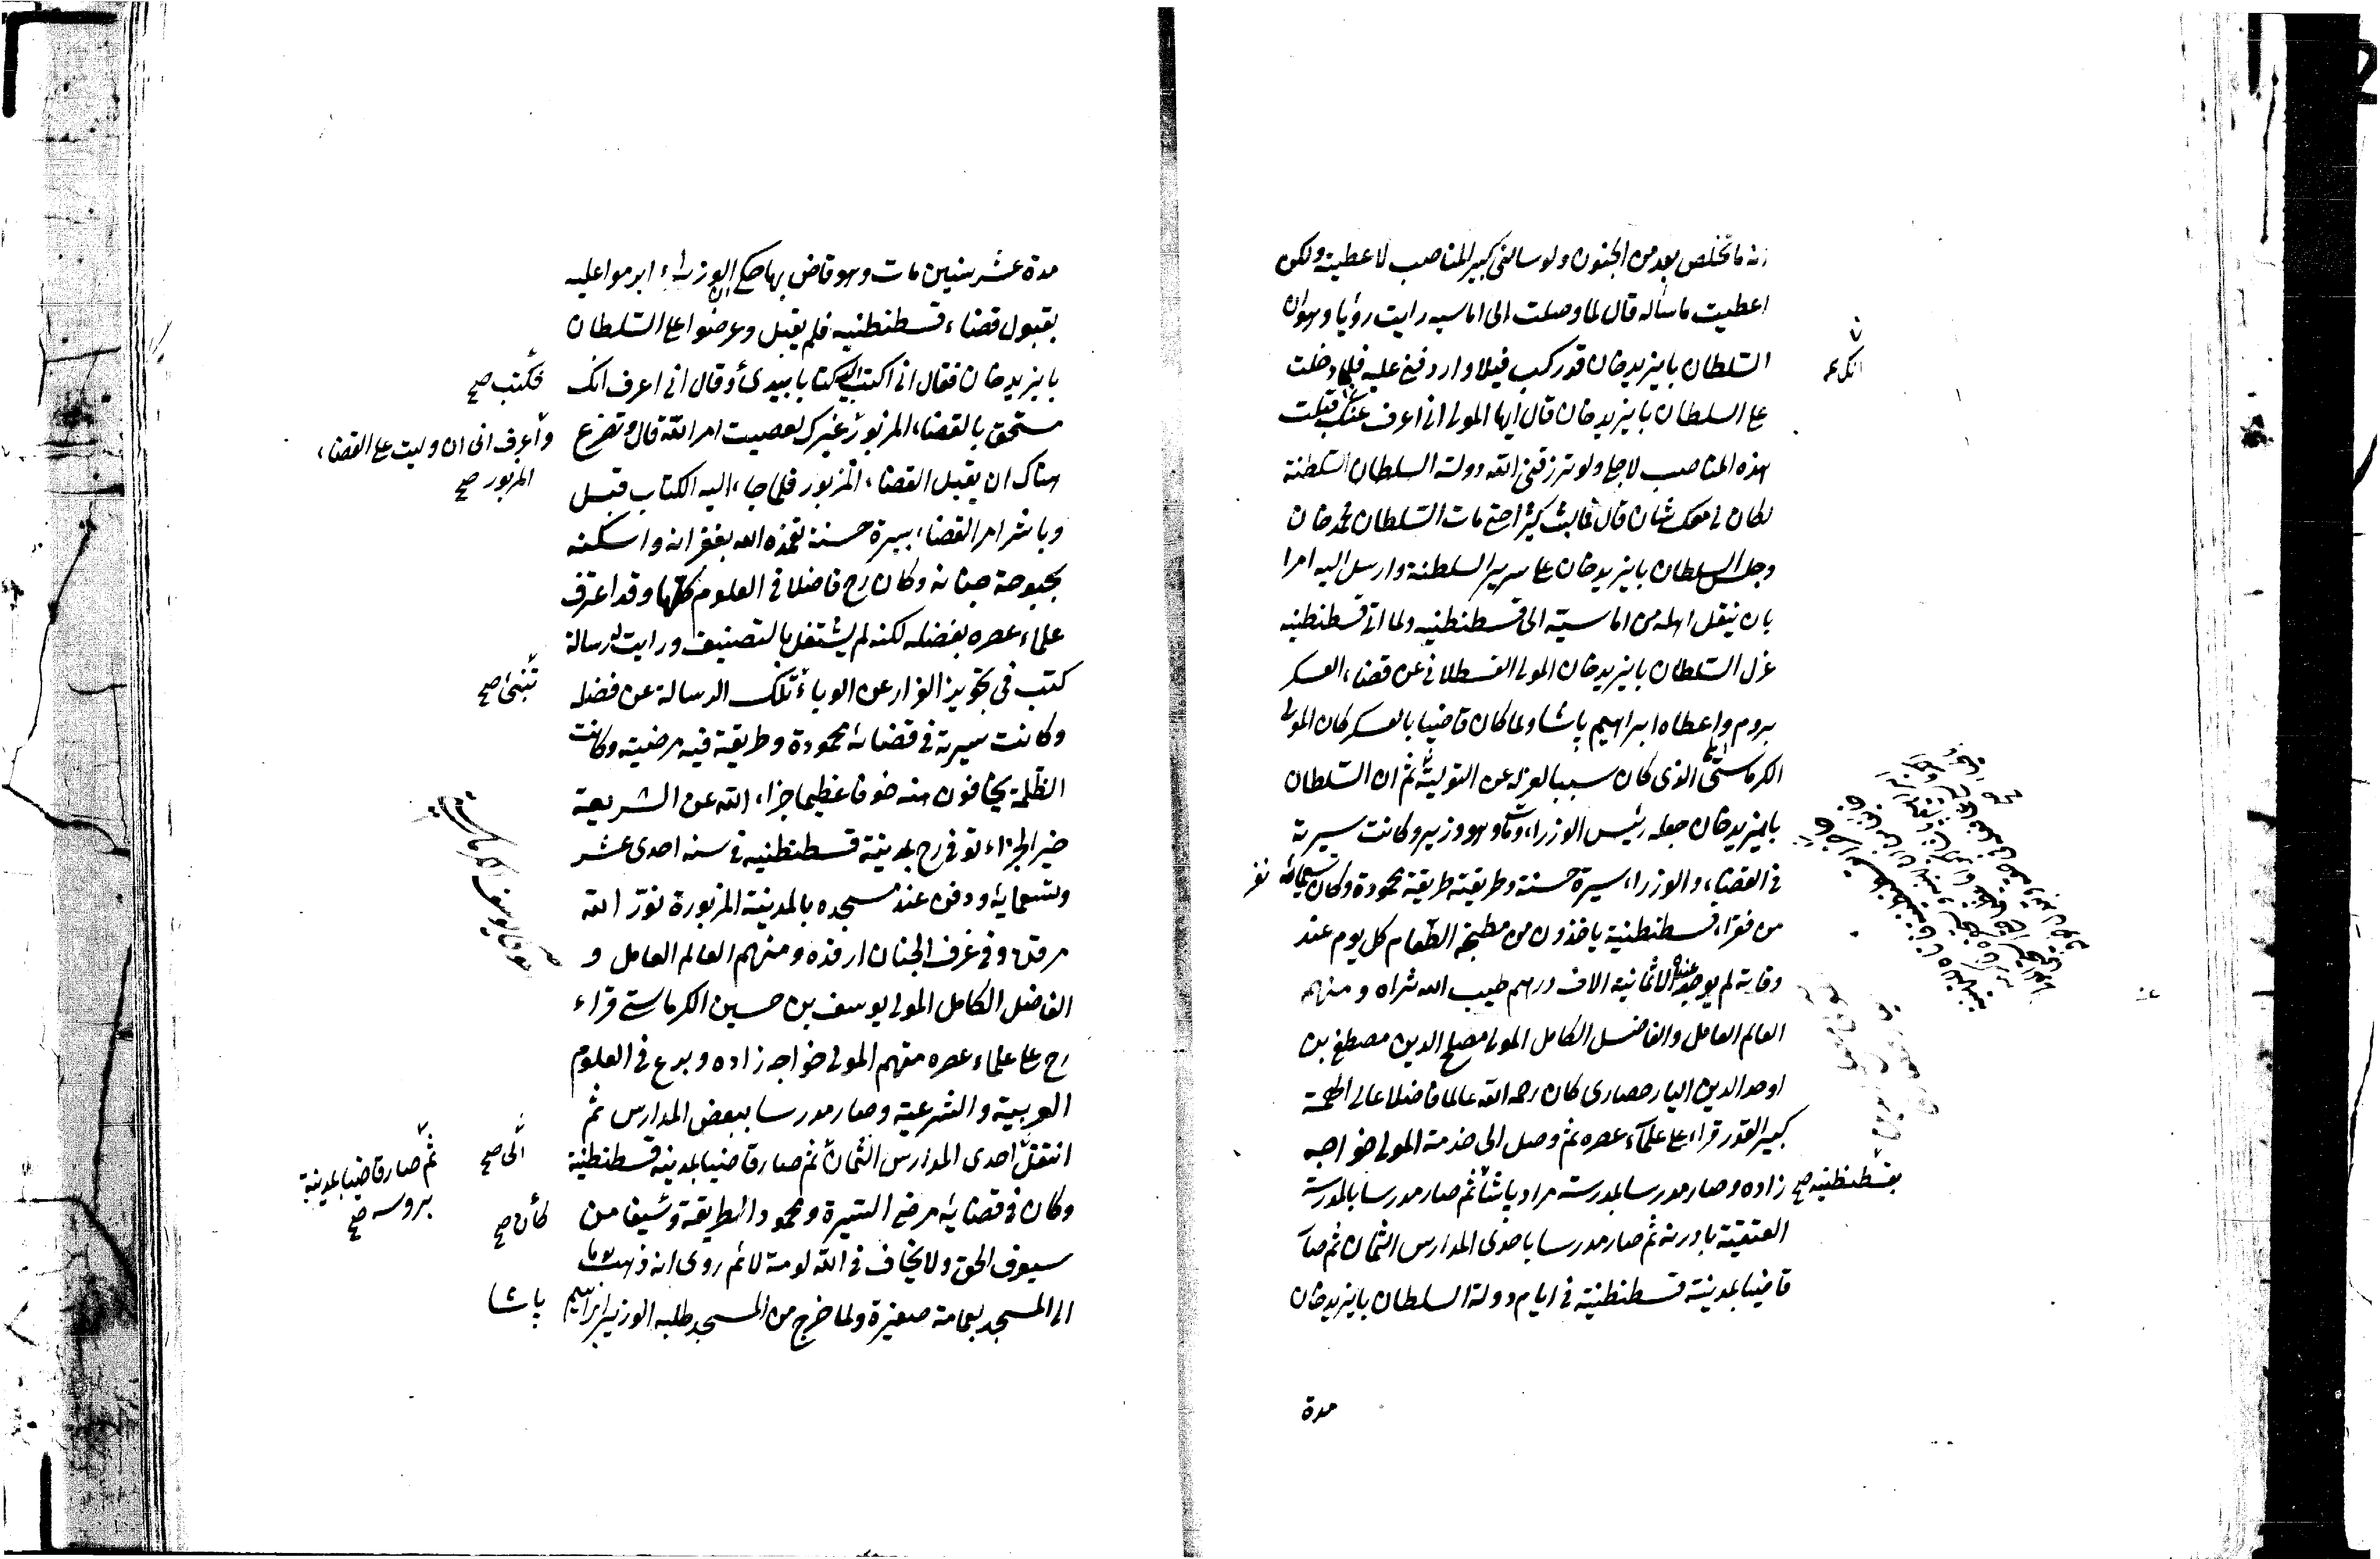 انه ما تخلص بعد من الجنون ولو سالنى كبير المناصب لاعطيته ولكن
اعطيت ما سأله قال لما وصلت الى اماسيه رايت رؤيا وهو ان
السلطان بايزيد خان قد ركب فيلا واردفنى عليه فلما دخلت
على السلطان بايزيد خان قال ايها المولى انى اعرف انك قبلت
هذه المناصب لاجلى ولو يرزقنى الله دولة السلطان السلطنة
لكان لى معك شان قال فما لبث كثيرا حتى مات السلطان محمد خان
وجلس السلطان بايزيد خان على سرير السلطنة وارسل اليه امرا
بان ينقل اهله من اماسيه الى قسطنطنيه ولما اتى قسطنطنيه
عزل السلطان بايزيد خان المولى القسطلانى عن قضاء العسكر
بروم واعطاه ابراهيم پاشا ولما كان قاضيا بالعسكر كان المولى
الكرماستى الذى كان سببا لعزله عن التولية ثم ان السلطان
بايزيد خان جعله رئيس الوزراء ومات وهو وزير وكانت سيرته
فى القضاء والوزراء سيرة حسنة وطريقته طريقة محمودة وكان تسعمائة نفر
من فقراء قسطنطنية ياخذون من مطبخه الطعام كل يوم عند
وفاته لم يوجد عنده الا ثمانية الاف درهم طيب الله ثراه ومنهم
العالم العامل والفاضل الكامل المولى مصلح الدين مصطفى بن
اوحد الدين اليار حصارى كان رحمه الله عالما فاضلا عالى الهمة
كبير القدر قراء على علماء عصره ثم وصل الى خدمة المولى خواجه
زاده وصار مدرسا بمدرسة مراد پاشا ثم صار مدرسا بالمدرسة
بقسطنطنيه صح
العتيقة بادرنه ثم صار مدرسا باحدى المدارس الثمان ثم صار
قاضيا بمدينة قسطنطنية فى ايام دولة السلطان بايزيد خان
مدة
مدة عشر سنين مات وهو قاض بها حكى ان الوزراء ابرموا عليه
بقبول قضاء قسطنطنيه فلم يقبل وعرضوا على السلطان
بايزيد خان فقال انى اكتب اليه كتابا بيدى وقال انى اعرف انك
فكتب صح
مستحق بالقضاء المزبور غيرك لعصيت امر الله قال وتضرع
واعرف انى ان وليت على القضاء
المزبور صح
هناك ان يقبل القضاء المزبور فلما جاء اليه الكتاب قبل
وباشر امر القضاء بسيرة حسنة تغمده الله بغفرانه واسكنه
بحبوحة جنانه وكان رح فاضلا فى العلوم كلها وقد اعترف
علماء عصره بفضله لكنه لم يشتغل بالتصنيف ورايت له رسالة
كتب فى تجويز الفرار عن الوباء تلك الرسالة عن فضله
تنبئ صح
وكانت سيرته فى قضائه محمودة وطريقة فيه مرضية وكانت
الظلمة يخافون منه خوفا عظيما جزاء الله عن الشريعة
خير الجزاء توفى رح بمدينة قسطنطنيه فى سنه احدى عشر
وتسعمايه ودفن عند مسجده بالمدينة المزبورة نور الله
مرقده وفى غرف الجنان ارقده ومنهم العالم العامل و
الفاضل الكامل المولى يوسف بن حسين الكرماستى قراء
رح على علماء عصره منهم المولى خواجه زاده وبرع فى العلوم
العربية والشرعية وصار مدرسا ببعض المدارس ثم
انتقل احدى المدارس الثمان ثم صار قاضيا بمدينة قسطنطنية
الى صح
ثم صار قاضيا بمدينة
بروسه صح
وكان فى قضايه مرضى السيرة ومحمود الطريقة وسيفا من
كان صح
سيوف الحق ولا يخاف فى الله لومة لائم روى انه ذهب يوما
الى المسجد بعمامة صغيرة ولما خرج من المسجد طلبه الوزير ابراهيم پاشا